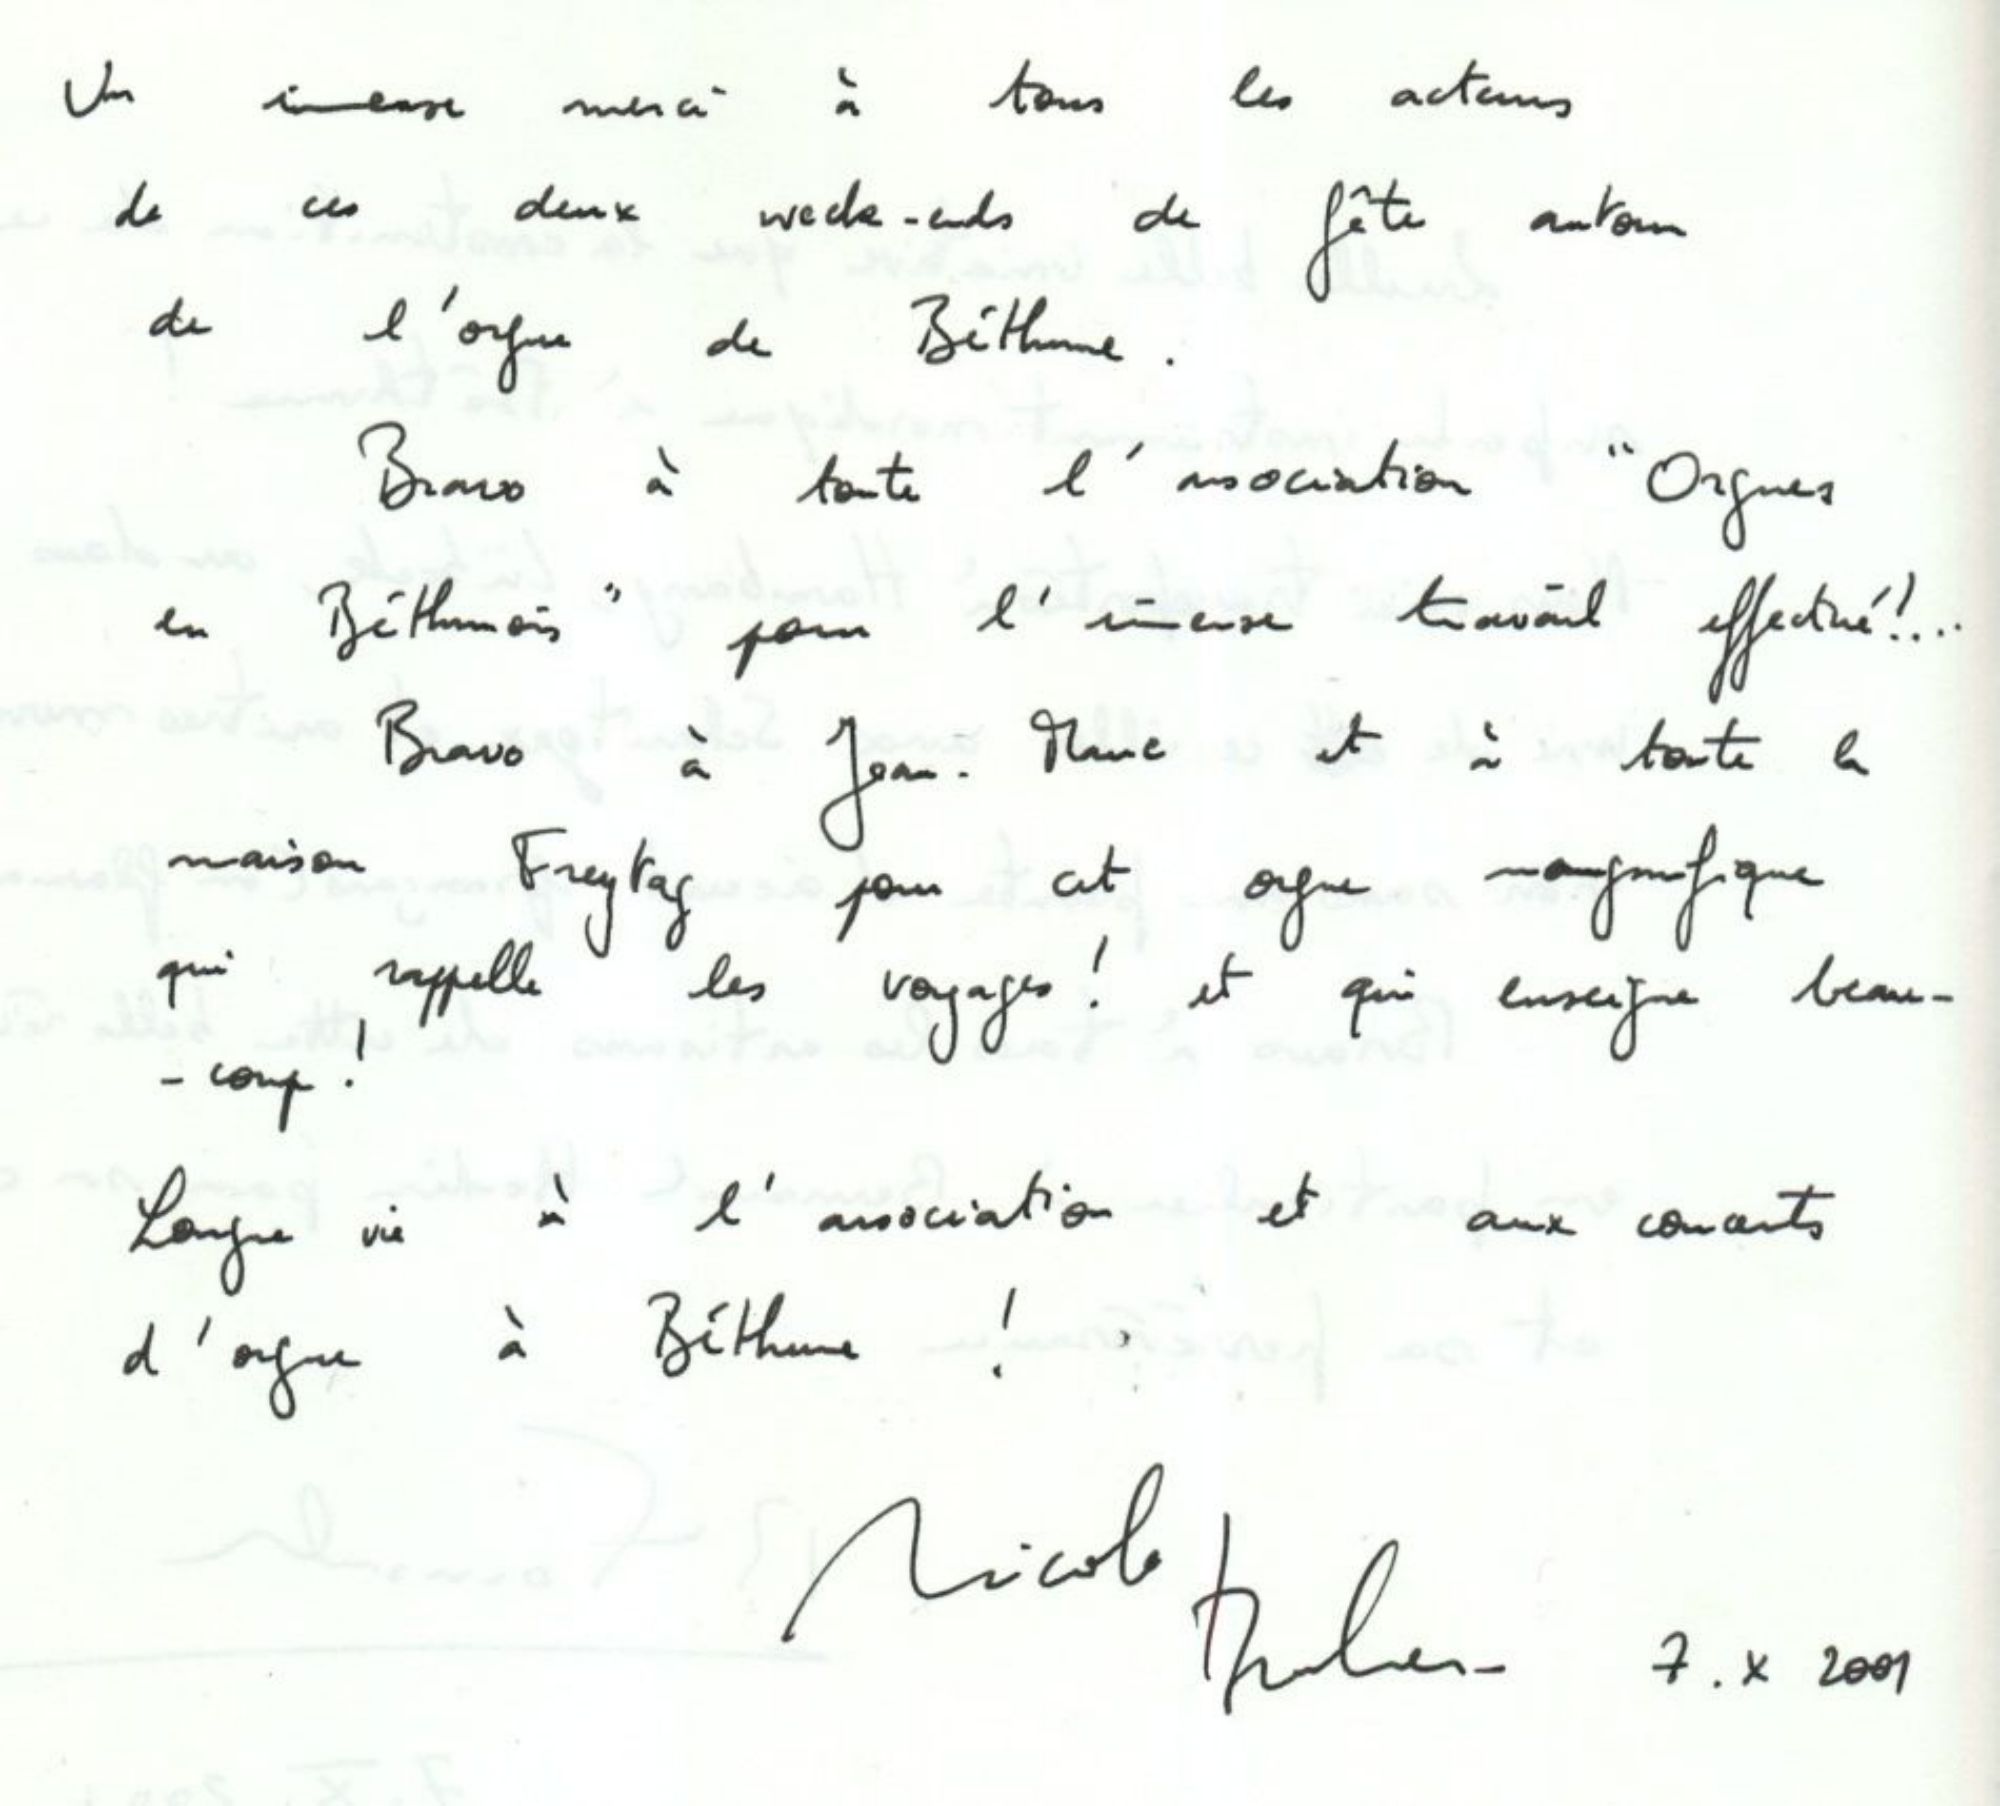 Un immense merci à tous les acteurs
de ces deux week-ends de fête autour
de l'orgue de Béthune.
Bravo à toute l'association "Orgues
en Béthunois" pour l'immense travail effectué!...
Bravo à Jean-Marc et à toute la
maison Freytag pour cet orgue magnifique
qui rappelle les voyages! et qui enseigne beau-
-coup!
Longue vie à l'association et aux concerts
d'orgue à Béthune !
Nicole
7.X 2001